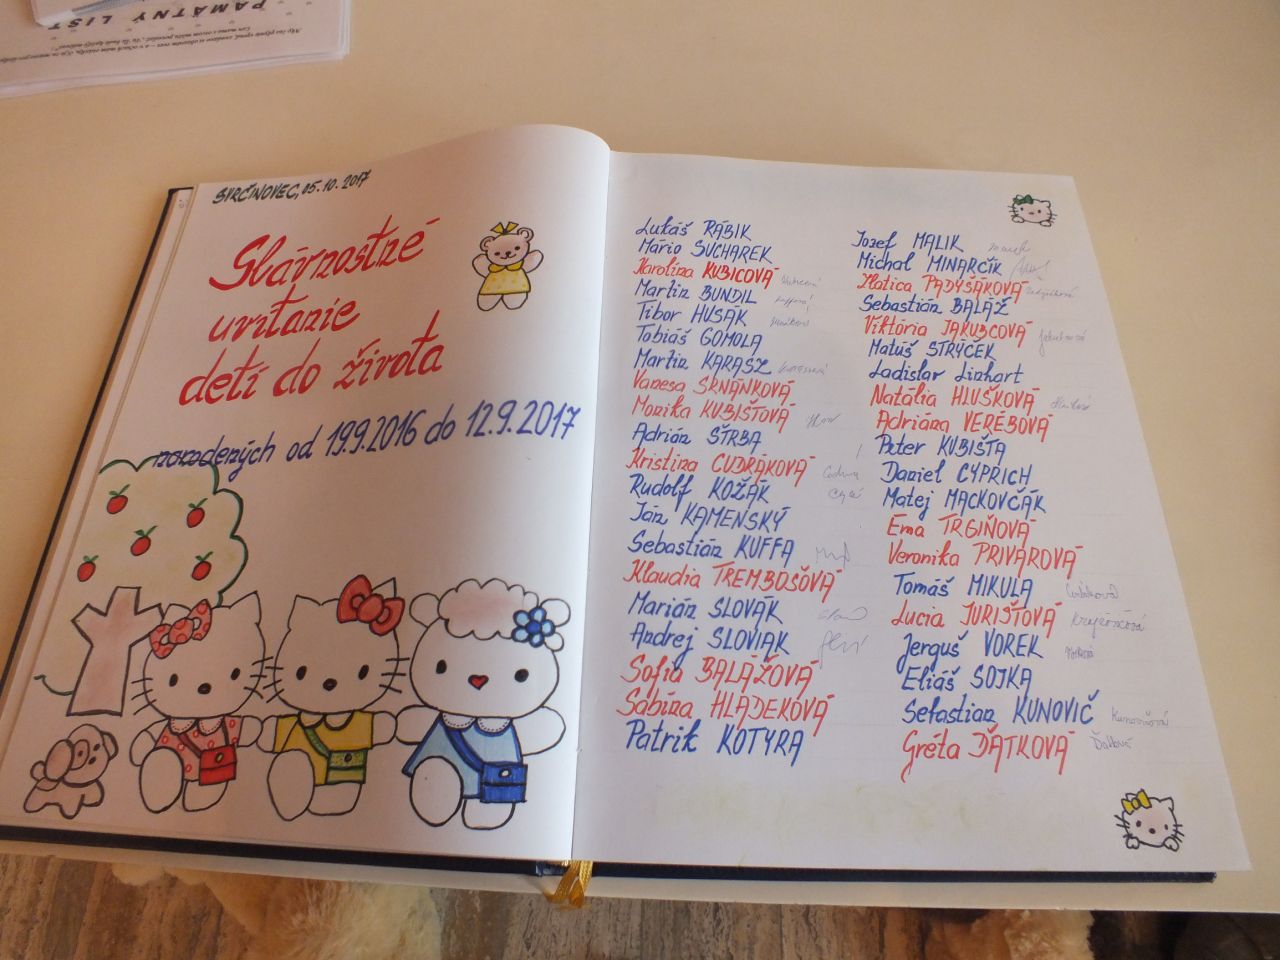 PAMÄTNÝ LIST
SVRČINOVEC, 05.10.2017
Slávnostné
uvítanie
detí do života
narodených od 19.9.2016 do 12.9.2017
Lukáš RÁBIK
Mário SUCHAREK
Karolína KUBICOVÁ
Martin BUNDIL
Tibor HUSÁK
Tobiáš GOMOLA
Martin KARASZ
Vanesa SRNÁNKOVÁ
Monika KUBIŠTOVÁ
Adrián ŠTRBA
Kristína CUDRÁKOVÁ
Rudolf KOŽÁK
Ján KAMENSKÝ
Sebastián KUFFA
Klaudia TREMBOŠOVÁ
Marián SLOVÁK
Andrej SLOVIAK
Sofia BALÁŽOVÁ
Sabína HLADEKOVÁ
Patrik KOTYRA
Jozef MALIK
Michal MINARČÍK
Zlatica PADYŠÁKOVÁ
Sebastián BALÁŽ
Viktória JAKUBCOVÁ
Matúš STRÝČEK
Ladislav Linhart
Natália HLUŠKOVÁ
Adriána VERÉBOVÁ
Peter KUBIŠTA
Daniel CYPRICH
Matej MACKOVČÁK
Ema TRGIŇOVÁ
Veronika PRIVAROVÁ
Tomáš MIKULA
Lucia JURIŠTOVÁ
Jerguš VOREK
Eliáš SOJKA
Sebastian KUNOVIČ
Gréta ĎATKOVÁ